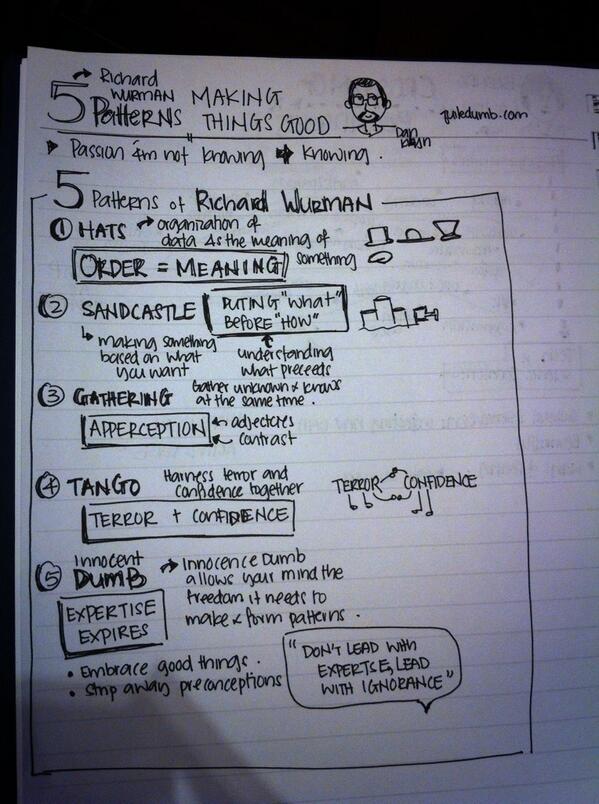 5 Patterns → Richard Wurman
MAKING THINGS GOOD
Dan
.com
▶ Passion 4m not knowing → knowing.
5 Patterns of Richard Wurman
① HATS → organization of
data is the meaning of
something
ORDER = MEANING
② SANDCASTLE
PUTING "what"
BEFORE "HOW"
↳ making something
based on what
you want
↑
understanding
what preceeds
③ GATHERING
Gather unknown & knows
at the same time.
APPERCEPTION
← adjectives
← contrast
④ TANGO
Harness terror and
confidence together
TERROR CONFIDENCE
TERROR + CONFIDENCE
⑤ Innocent
DUMB
→ Innocence Dumb
allows your mind the
freedom it needs to
make & form patterns.
EXPERTISE
EXPIRES
• Embrace good things.
• Strip away preconceptions
"DON'T LEAD WITH
EXPERTSE, LEAD
WITH IGNORANCE"